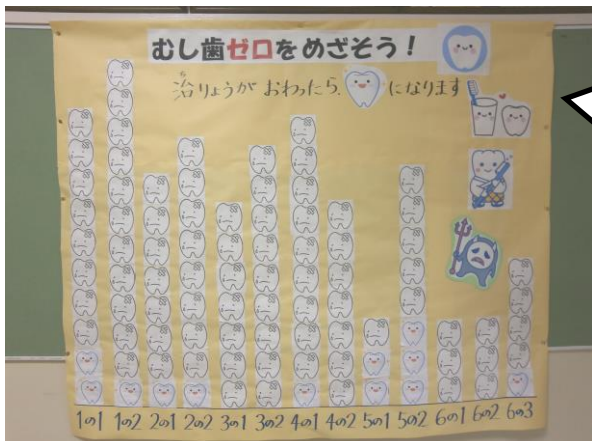 むし歯ゼロをめざそう！
ち
治りょうが おわったら、になります
1の1 1の2 2の1 2の2 3の1 3の2 4の1 4の2 5の1 5の2 6の1 6の2 6の3